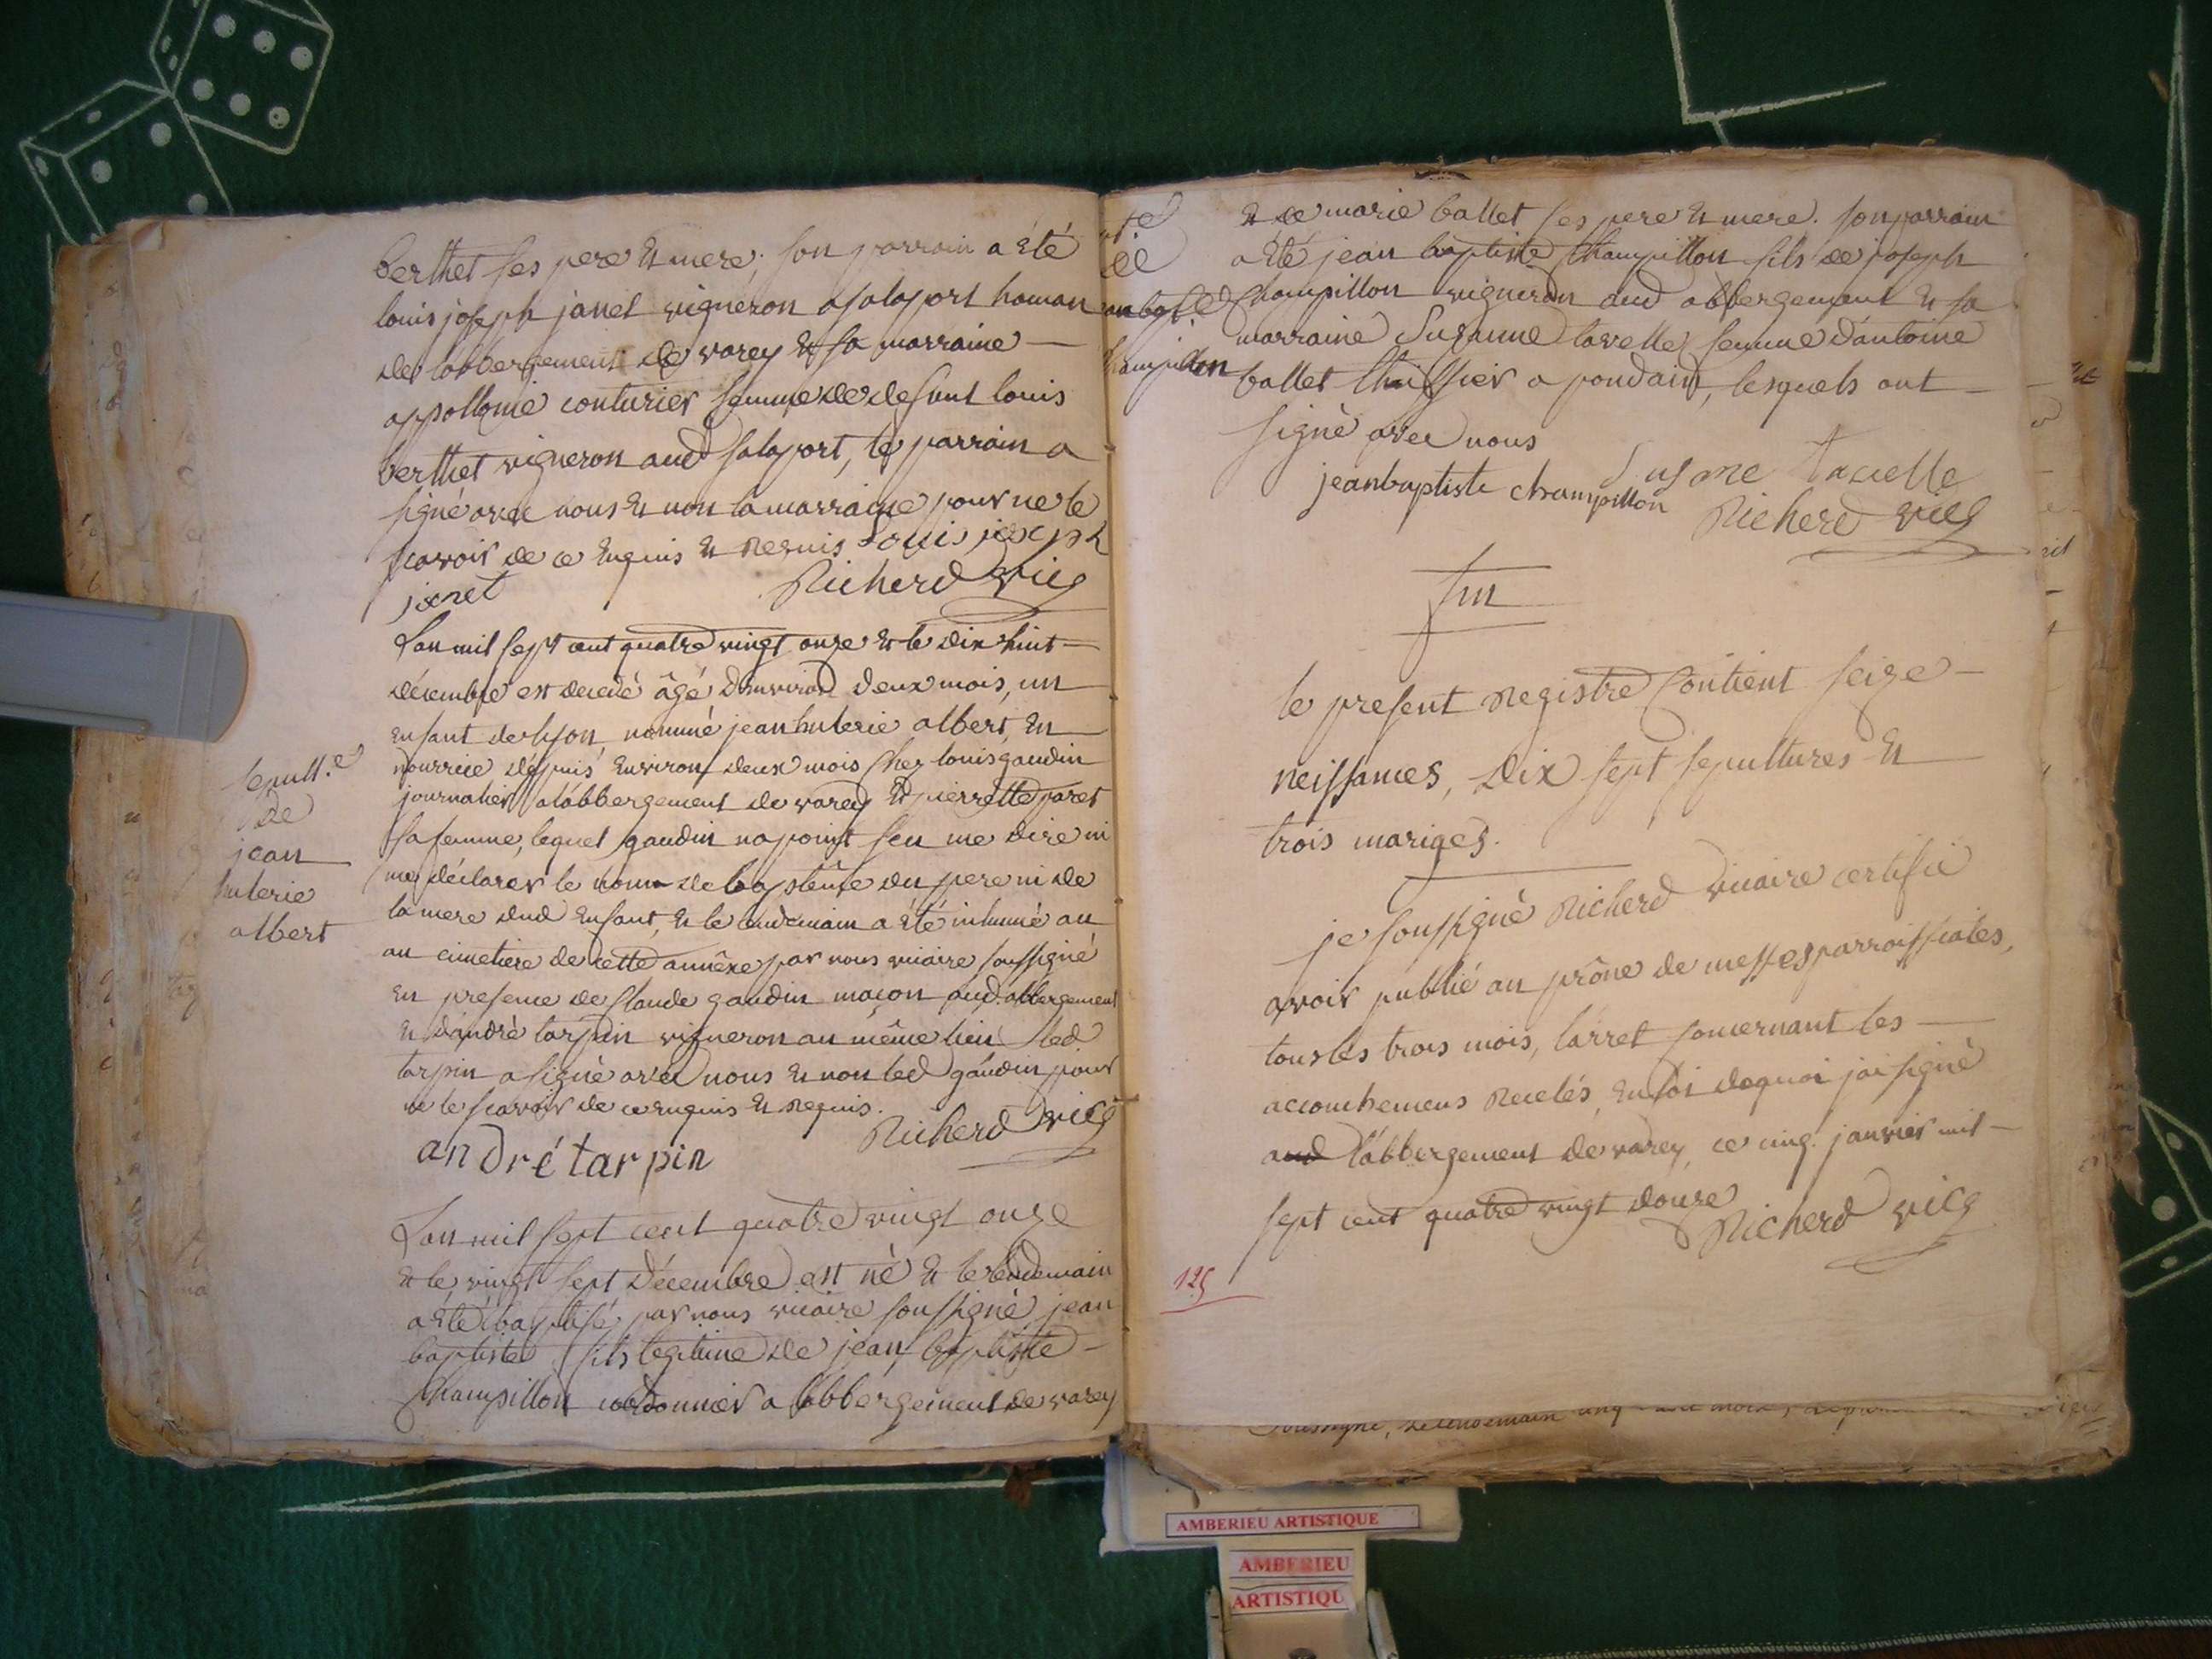 berthet ses pere et mere, son parrain a été
louis joseph janet vigneron a salaport hamau
de l'abbergement de varey et sa marraine
appollonie couturier femme de defunt louis
berthet vigneron aud salaport, le parrain a
signé avec nous et non la marraine pour ne le
scavoir de ce enquis et requis Louis joseph
janet Richerd vicg
L'an mil sept cent quatre vingt onze et le dix huit
décembre est decedé âgé d'environ deux mois, un
enfant de lyon, nommé jean huterie albert, en
nourrice depuis environ deux mois chez louis gaudin
journalier a l'abbergement de varey et pierrette paret
sa femme, lequel gaudin na point seu me dire ni
me déclarer le nom de baptême du pere ni de
la mere dud enfant, et le lendemain a été inhumé au
au cimetiere de cette annêxe par nous vicaire soussigné
en presence de Claude gaudin maçon aud. abbergement
et d'andré tarpin vigneron au même lieu led
tarpin a signé avec nous et non led gaudin pour
ne le scavoir de ce enquis et requis.
Richerd vicg
andré tarpin
sepult.e
de
jean
huterie
albert
L'an mil sept cent quatre vingt onze
et le vingt sept décembre est né et le lendemain
a été baptisé par nous vicaire soussigné jean
baptiste fils legitime de jean baptiste
Champillon cordonnier a l'abbergement de varey
de
hampillon
et de marie ballet ses pere et mere. son parrain
a été jean baptiste Champillon fils de joseph
Champillon vigneron aud abbergement et sa
marraine Suzanne tavelle femme d'antoine
ballet thuissier a pondain, lesquels ont
signé avec nous
jeanbaptiste champillon
Richerd vicg
fin
le present registre Contient seize
neissances, dix sept sepultures et
trois mariges.
je soussigné Richerd vicaire certifie
avoir publié au prône de messes parroissiales,
tous les trois mois, l'arret concernant les
accouchemens recelés, en foi de quoi jai signé
aud l'abbergement de varey, ce cinq janvier mil
sept cent quatre vingt douze
Richerd vicg
125
soussigné, le lendemain
AMBERIEU ARTISTIQUE
AMBERIEU
ARTISTIQU